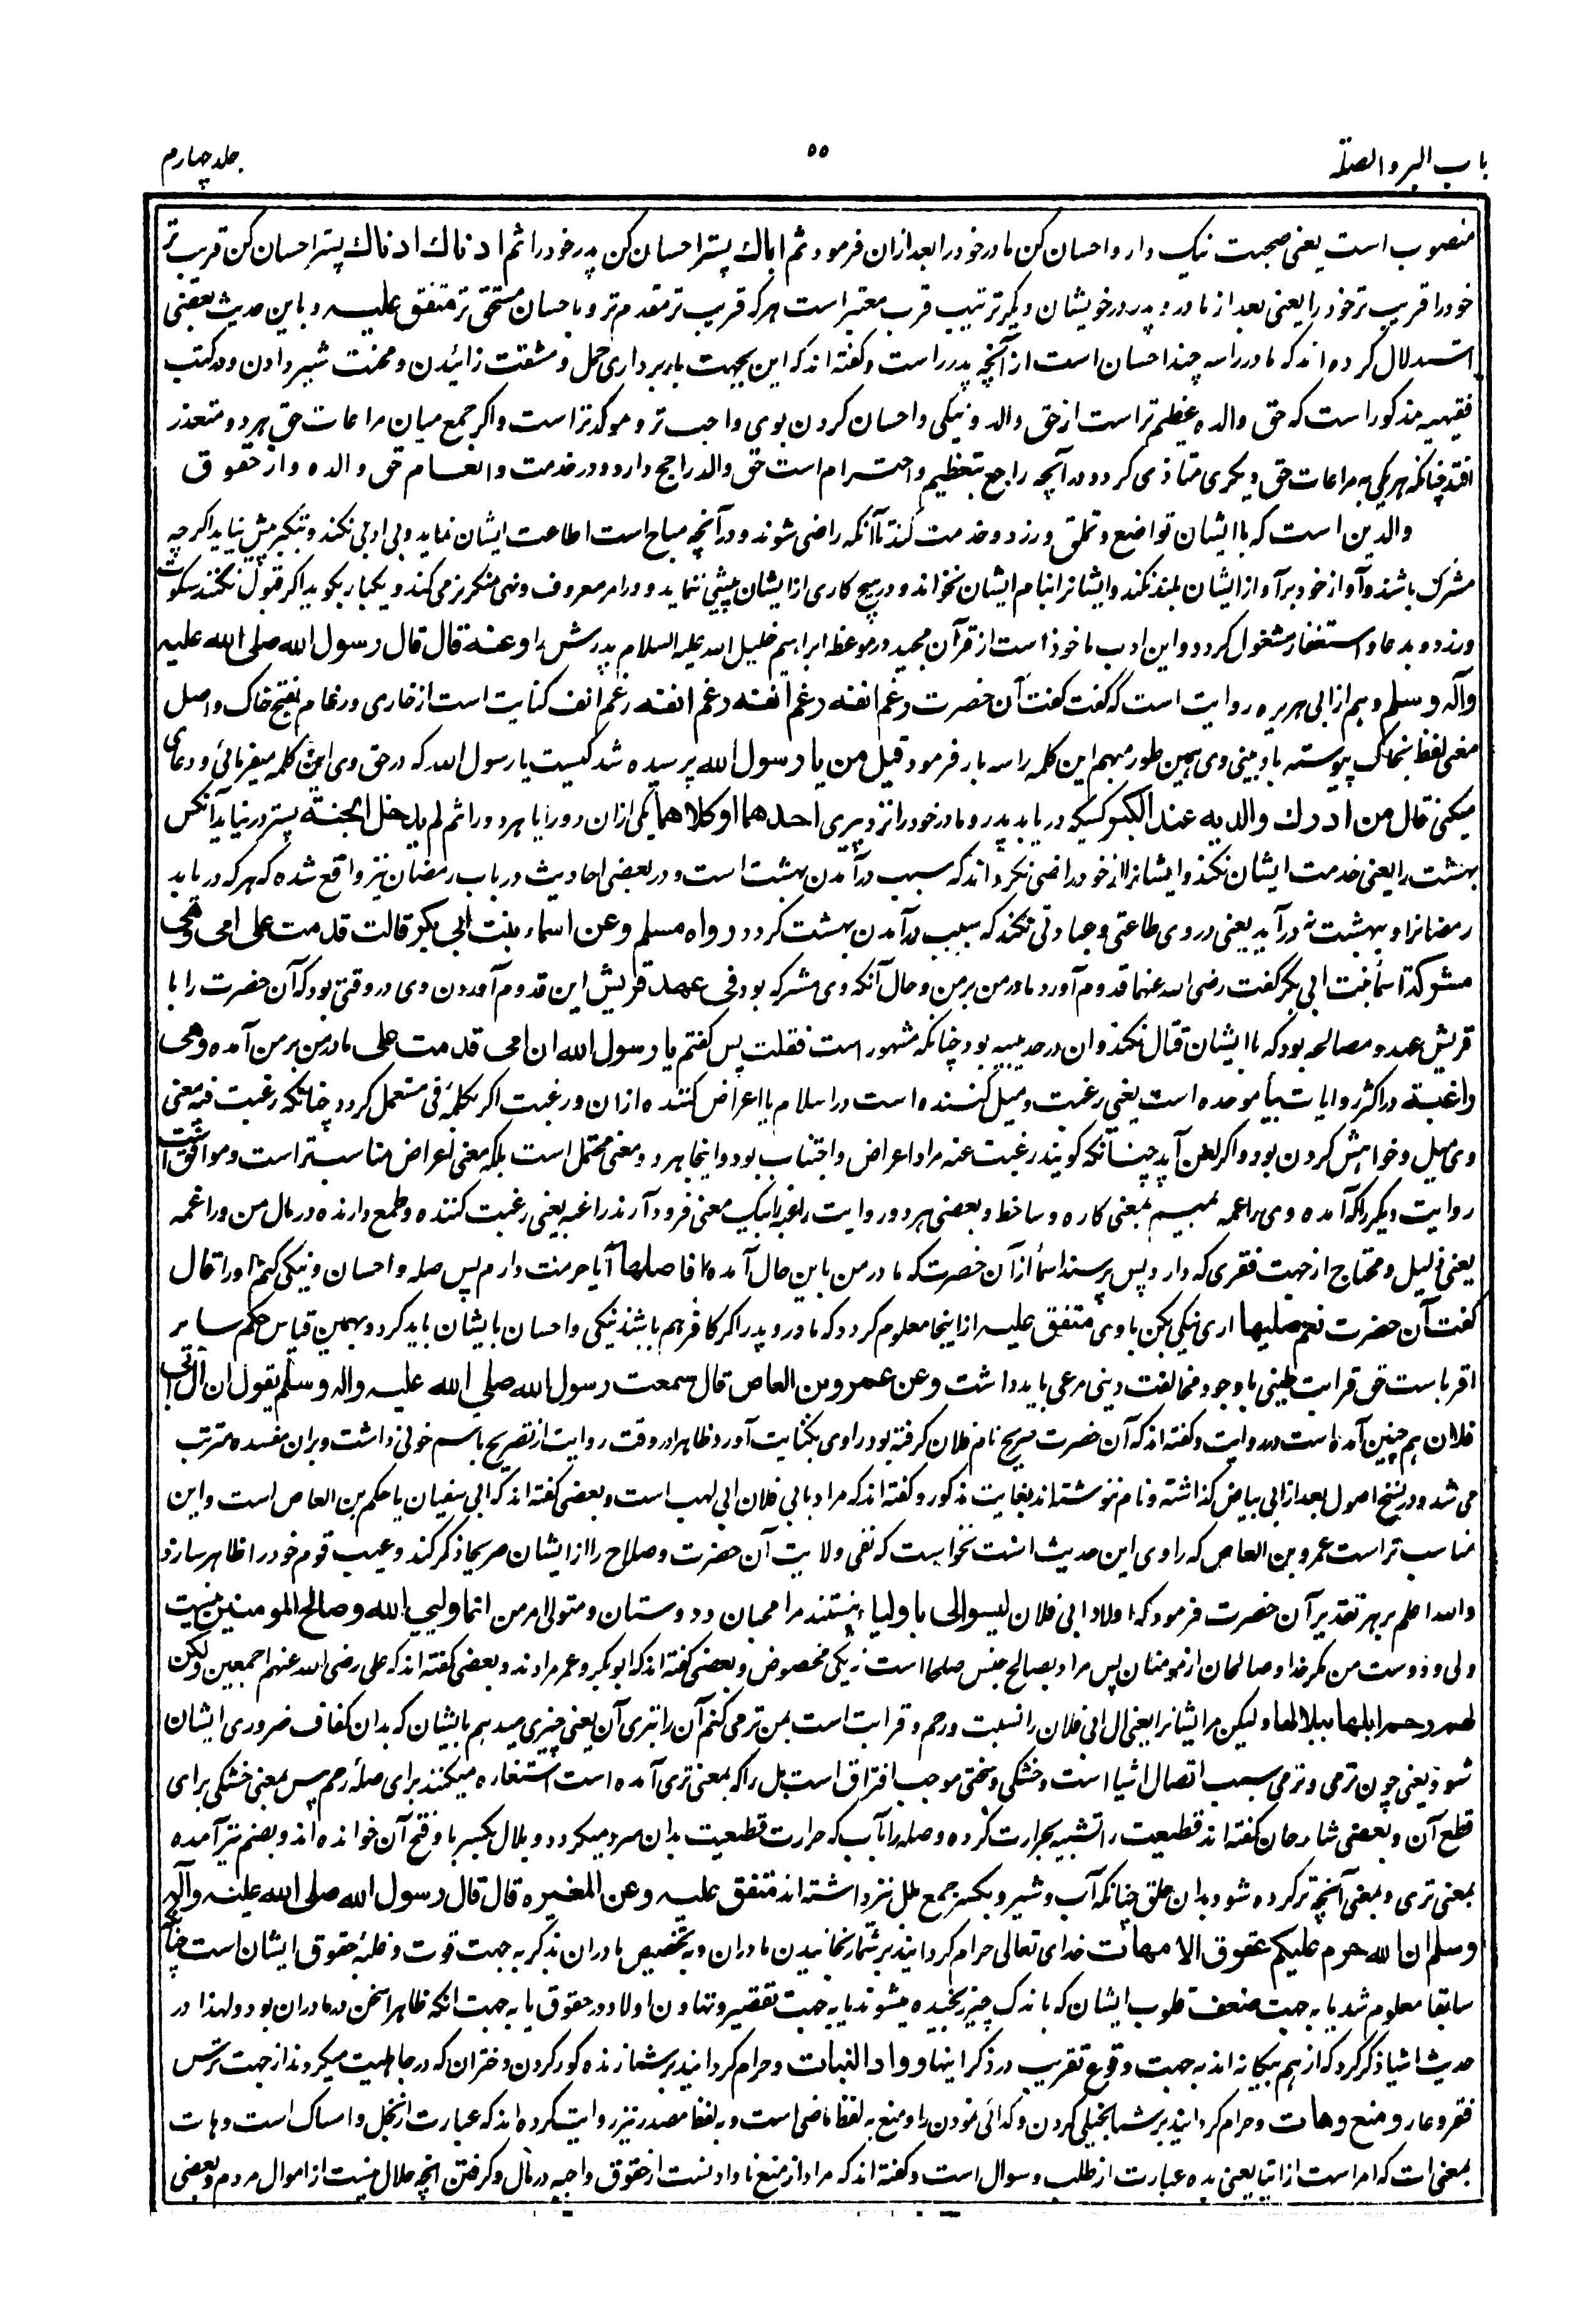 باب البر والصلة
۵۵
جلد چهارم
منصوب است یعنی صحبت نیک دار و احسان کن مادر خود را بعد ازان فرمود ثم اباك پستر احسان کن پدر خود را ثم ادناك ادناك پستر احسان کن قریب تر
خود را قریب تر خود را یعنی بعد از مادر و پدر در خویشان دیگر ترتیب قرب معتبر است هر که قریب تر مقدم تر و باحسان مستحق تر متفق علیه و باین حدیث بعضی
استدلال کرده اند که مادر را سه چند احسان است از آنچه پدر راست و گفته اند که این بجهت باربرداری حمل و مشقت زائیدن و محنت شیر دادن و در کتب
فقیهیه مذکور است که حق والده عظیم تر است از حق والد و نیکی و احسان کردن بوی واجب تر و موکد تر است و اگر جمع میان مراعات حق هر دو متعذر
افتد چنانکه هر یکی به مراعات حق دیگری متاذی گردد در آنچه راجع بتعظیم و احترام است حق والد راجح دارد و در خدمت و انعام حق والده و از حقوق
والدین است که با ایشان تواضع و تملق ورزد و خدمت کند تا آنکه راضی شوند و در آنچه مباح است اطاعت ایشان نماید و بی ادبی نکند و بتکبر پیش نیاید اگرچه
مشرک باشند و آواز خود بر آواز ایشان بلند نکند و ایشانرا بنام ایشان نخواند و در هیچ کاری از ایشان پیشی ننماید و در امر معروف و نهی منکر نرمی کند و یکبار بگوید اگر قبول نکنند سکوت
ورزد و بدعا و استغفار مشغول گردد و این ادب ماخوذ است از قرآن مجید در موعظه ابراهیم خلیل الله علیه السلام پدرش را وعنه قال قال رسول الله صلی الله علیه
وآله وسلم و هم از ابی هریره روایت است که گفت گفت آن حضرت رغم انفه رغم انفه رغم انفه رغم انف کنایت است از خاری و رغام بفتح خاک و اصل
معنی لفظ بخاک پیوسته باد بینی وی همین طور مبهم این کلمه را سه بار فرمود قیل من یا رسول الله پرسیده شد کیست یا رسول الله که در حق وی این کلمه میفرمائی و دعای
میکنی قال من ادرك والدیه عند الکبر کسیکه دریابد پدر و مادر خود را نزد پیری احدهما او کلاهما یکی ازان دو را یا هر دو را ثم لم یدخل الجنة پستر درنیاید آنکس
بهشت را یعنی خدمت ایشان نکند و ایشانرا از خود راضی نگرداند که سبب درآمدن بهشت است و در بعضی احادیث در باب رمضان نیز واقع شده که هر که دریابد
رمضانرا و ببهشت نه درآید یعنی در وی طاعتی و عبادتی نکند که سبب درآمدن بهشت گردد رواه مسلم وعن اسماء بنت ابی بکر قالت قدمت علی امی وهی
مشرکة اسماء بنت ابی بکر گفت رضی الله عنها قدوم آورد مادر من بر من و حال آنکه وی مشرکه بود فی عهد قریش این قدوم آوردن وی در وقتی بود که آن حضرت را با
قریش عهد و مصالحه بود که با ایشان قتال نکند و ان در حدیبیه بود چنانکه مشهور است فقلت پس گفتم یا رسول الله ان امی قدمت علی مادر من بر من آمده وهی
راغبة در اکثر روایات بباء موحده است یعنی رغبت و میل کننده است در اسلام یا اعراض کننده ازان و رغبت اگر بکلمه فی مستعمل گردد چنانکه رغبت فیه معنی
وی میل و خواهش کردن بود و اگر بعن آید چنانکه گویند رغبت عنه مراد اعراض و اجتناب بود و اینجا هر دو معنی محتمل است بلکه معنی اعراض مناسب تر است و موافق است
روایت دیگر را که آمده وهی راغمه بمیم بمعنی کاره و ساخط و بعضی هر دو روایت راغبه را بیک معنی فرود آرند راغبه یعنی رغبت کننده و طمع دارنده در مال من و راغمه
یعنی ذلیل و محتاج از جهت فقری که دارد پس پرسید اسماء از آن حضرت که مادر من باین حال آمده افاصلها آیا حرمت دارم پس صله و احسان و نیکی کنم او را قال
گفت آن حضرت نعم صلیها اری نیکی بکن با وی متفق علیه از اینجا معلوم گردد که مادر و پدر اگر کافر هم باشند نیکی و احسان بایشان باید کرد و بهمین قیاس حکم سایر
اقربا ست حق قرابت طینی با وجود مخالفت دینی مرعی باید داشت وعن عمرو بن العاص قال سمعت رسول الله صلی الله علیه واله وسلم یقول ان آل ابی
فلان هم چنین آمده است در روایت و گفته اند که آن حضرت صریح نام فلان گرفته بود راوی بکنایت آورد ظاهرا در وقت روایت از تصریح باسم خوفی داشت و بران مفسده مترتب
می شد و در نسخ اصول بعد از ابی بیاض گذاشته و نام ننوشته اند بغایت مذکور و گفته اند که مراد بابی فلان ابی لهب است و بعضی گفته اند که ابی سفیان یا حکم بن العاص است و این
مناسب تر است عمرو بن العاص که راوی این حدیث است نخواست که نفی ولایت آن حضرت و صلاح را از ایشان صریحا ذکر کند و عیب قوم خود را ظاهر سازد
والله اعلم بر هر تقدیر آن حضرت فرمود که اولاد ابی فلان لیسوا لی باولیاء نیستند مرا محبان و دوستان و متولی امر من انما ولیی الله وصالح المومنین نیست
ولی و دوست من مگر خدا و صالحان از مومنان پس مراد بصالح جنس صلحا است نه یکی مخصوص و بعضی گفته اند که ابوبکر و عمر مرادند و بعضی گفته اند که علی رضی الله عنهم اجمعین ولکن
لهم رحم ابلها ببلالها ولیکن مر ایشانرا یعنی ال ابی فلان را نسبت و رحم و قرابت است بمن تر می کنم آن را بتری آن یعنی چیزی میدهم بایشان که بدان کفاف ضروری ایشان
شود یعنی چون تری و نرمی سبب اتصال اشیا است و خشکی و سختی موجب افتراق است بل را که بمعنی تری آمده است استعاره میکنند برای صله رحم پس بمعنی خشکی برای
قطع آن و بعضی شارحان گفته اند قطیعت را تشبیه بحرارت کرده و صله را بآب که حرارت قطیعت بدان سرد میگردد و بلال بکسر با و فتح آن خوانده اند و بضم نیز آمده
بمعنی تری و بمعنی آنچه تر کرده شود بدان حلق چنانکه آب و شیر و بکسر جمع بلل نیز داشته اند متفق علیه وعن المغیره قال قال رسول الله صلی الله علیه وآله
وسلم ان الله حرم علیکم عقوق الامهات خدای تعالی حرام گردانید بر شما رنجانیدن مادران و تخصیص مادران بذکر به جهت قوت و غلبه حقوق ایشان است چنانچه
سابقا معلوم شد یا به جهت ضعف قلوب ایشان که باندک چیز رنجیده میشوند یا به جهت تقصیر و تهاون اولاد در حقوق یا به جهت انکه ظاهرا سخن در مادران بود و لهذا در
حدیث اشیا ذکر کرد که از هم بیگانه اند به جهت وقوع تقریب در ذکر اینها وواد البنات وحرام گردانید بر شما زنده گور کردن دختران که در جاهلیت میکردند از جهت ترس
فقر و عار ومنع وهات وحرام گردانید بر شما بخیلی کردن و گدائی نمودن را و منع به لفظ ماضی است و به لفظ مصدر نیز روایت کرده اند که عبارت از بخل و امساک است و هات
بمعنی ات که امر است از ایتا یعنی بده عبارت از طلب و سوال است و گفته اند که مراد از منع نا دادنست از حقوق واجبه در مال و گرفتن انچه حلال نیست از اموال مردم و بعضی